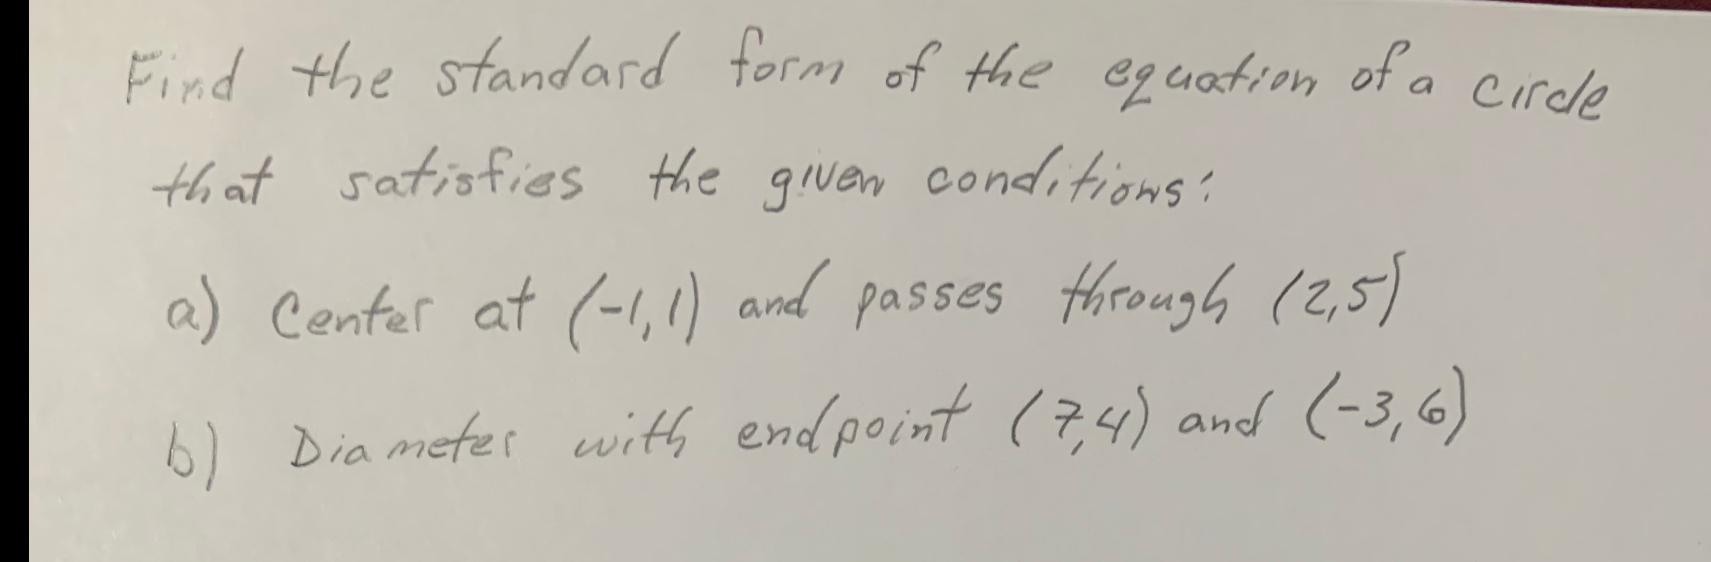 Find the standard form of the equation of a circle
that satisfies the given conditions:
a) Center at (-1,1) and passes through (2,5)
b) Diameter with endpoint (7,4) and (-3,6)